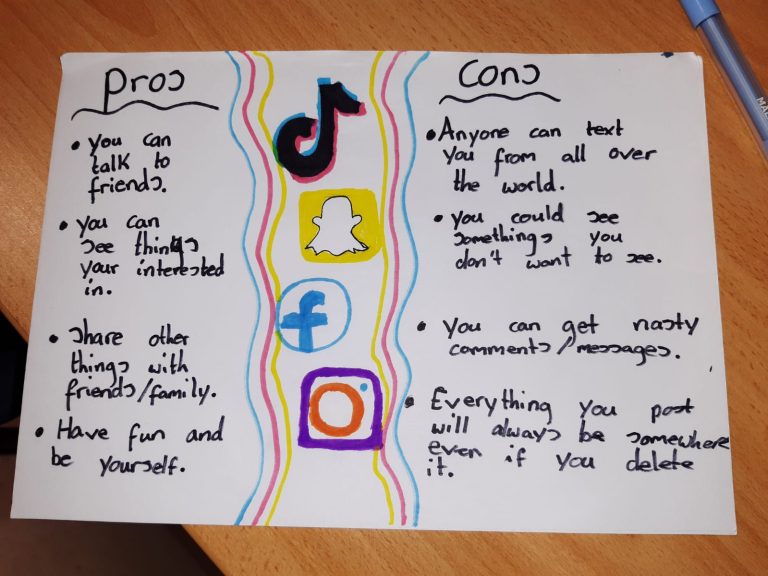 Pros
• You can
talk to
friends.
• You can
see things
your interested
in.
• Share other
things with
friends/family.
• Have fun and
be yourself.
f
Cons
• Anyone can text
you from all over
the world.
• You could see
somethings you
don't want to see.
• You can get nasty
comments/messages.
• Everything you post
will always be somewhere
even if you delete
it.